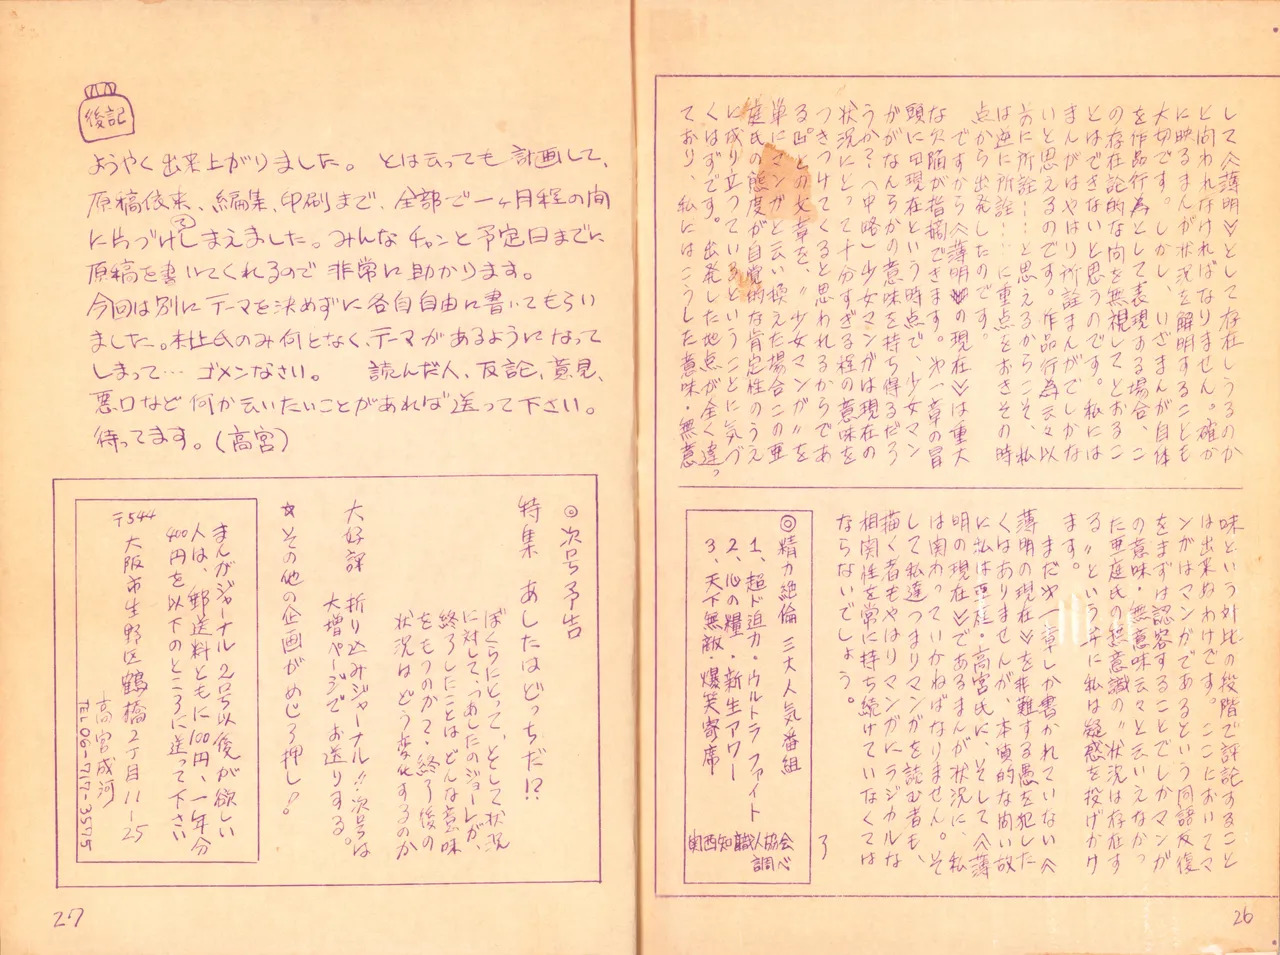 して〈薄明〉として存在しうるのか
と問われなければなりません。確か
に映るまんが状況を解明することも
大切です。しかし、いざまんが自体
を作品行為として表現する場合、こ
の存在論的な問を無視してとおるこ
とはできないと思うのです。私には
まんがはやはり所詮まんがでしかな
いと思えるのです。作品行為云々以
前に所詮……と思えるからこそ、私
は逆に所詮……に重点をおきその時
点から出発したのです。
ですから〈薄明の現在〉は重大
な欠陥が指摘できます。第一章の冒
頭に「現在という時点で、少女マン
ががなんらかの意味を持ち得るだろ
うか?(中略)少女マンガは現在の
状況にとって十分すぎる程の意味を
つきつけてくると思われるからであ
る」との文章を、〝少女マンガ〟を
単にマンガと云い換えた場合この亜
庭氏の態度が自覚的な肯定性のうえ
に成り立っているということに気づ
くはずです。出発した地点が全く違っ
ており、私にはこうした意味・無意
味という対比の段階で評記すること
は出来ぬわけです。ここにおいてマ
ンガはマンガであるという同語反復
をまずは認容することでしかマンガ
の意味・無意味云々と云いえなかっ
た亜庭氏の超意識の〝状況は存在す
る〟という弁に私は疑惑を投げかけ
ます。
まだ第一章しか書かれていない〈
薄明の現在〉を非難する愚を犯した
くはありませんが、本質的な問い故
に私は亜庭・高宮氏に、そして〈薄
明の現在〉であるまんが状況に、私
は関わっていかねばなりません。そ
して私達つまりマンガを読む者も、
描く者もやはりマンガにラジカルな
相関性を常に持ち続けていなくては
ならないでしょう。
◎精力絶倫 三大人気番組
1、超ド迫力・ウルトラファイト
2、心の糧・新生アワー
3、天下無敵・爆笑寄席
関西知識人協会
調べ
26
後記
ようやく出来上がりました。とは云っても計画して、
原稿依来、編集、印刷まで、全部で一ヶ月程の間
に片づけてしまえました。みんなチャンと予定日までに
原稿を書いてくれるので非常に助かります。
今回は別にテーマを決めずに各自自由に書いてもらい
ました。村上氏のみ何となく、テーマがあるようになって
しまって… ゴメンなさい。 読んだ人、反論、意見、
悪口など何か云いたいことがあれば送って下さい。
待ってます。(高宮)
◎次号予告
特集 あしたはどっちだ!?
ぼくらにとって、として状況
に対して、〝あしたのジョー〟が、
終了したことは、どんな意味
をもつのか?・終了後の
状況はどう変化するのか
大好評 折り込みジャーナル!!次号は
大増ページでお送りする。
☆その他の企画がめじろ押し!
まんがジャーナル2号以後が欲しい
人は、郵送料ともに100円、一年分
400円を以下のところに送って下さい
〒544
大阪市生野区鶴橋2丁目11-25
高宮成河
TEL 06-717-3575
27